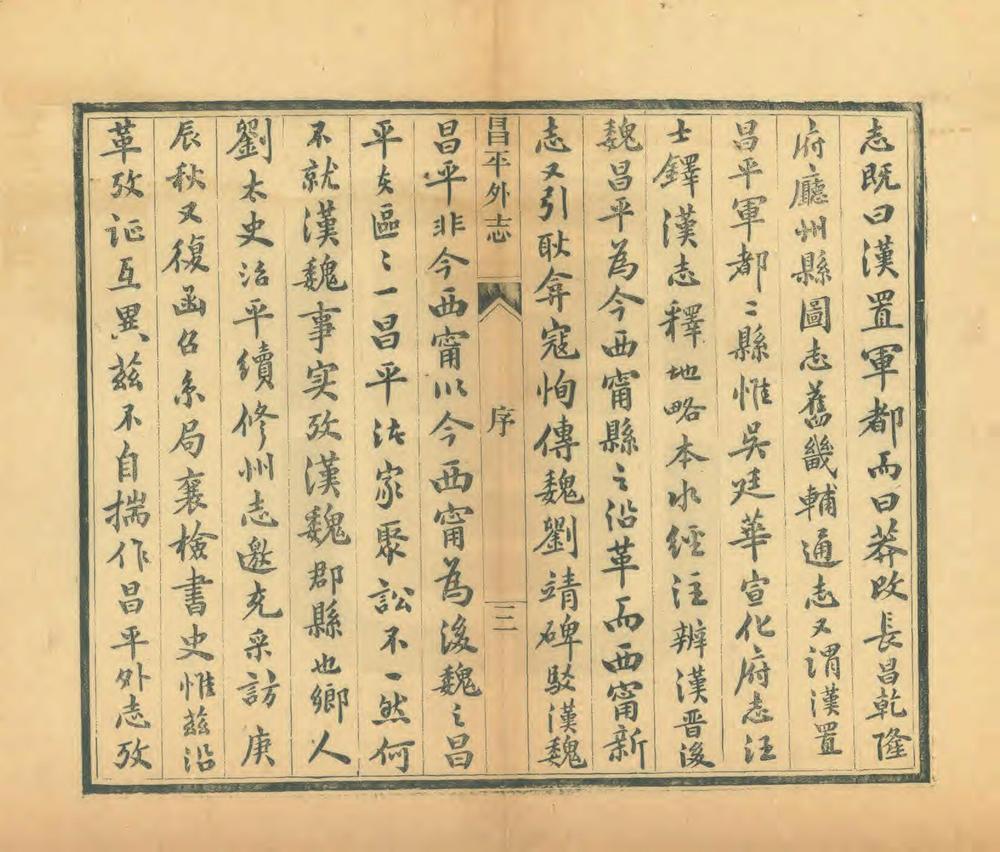 志既曰漢置軍都而曰莽改長昌乾隆
府廳州縣圖志舊畿輔通志又謂漢置
昌平軍都二縣惟吳廷華宣化府志汪
士鐸漢志釋地略本水經注辨漢晋後
魏昌平為今西甯縣之沿革而西甯新
志又引耿弇寇恂傳魏劉靖碑駁漢魏
昌平外志
序
三
昌平非今西甯以今西甯為後魏之昌
平夫區〻一昌平法家聚訟不一然何
不就漢魏事实攷漢魏郡縣也鄉人
劉太史治平續修州志邀充采訪庚
辰秋又復函召糸局襄檢書史惟茲沿
革攷证互異茲不自揣作昌平外志攷